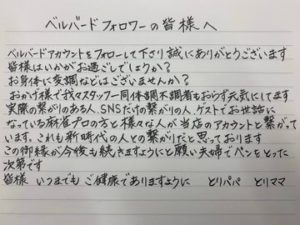 ベルバードフォロワーの皆様へ
ベルバードアカウントをフォローして下さり誠にありがとうございます
皆様はいかがお過ごしでしょうか?
お身体に変調などはございませんか?
おかげ様で我々スタッフ一同体調不調者もおらず元気にしてます
実際の繋がりのある人、SNSだけの繋がりの人、ゲストでお世話に
なっている麻雀プロの方と様々な人が当店のアカウントと繋がって
います。これも新時代の人との繋がりだと思っております
この御縁が今後も続きますようにと願い夫婦でペンをとった
次第です
皆様 いつまでも ご健康でありますように とりパパ とりママ